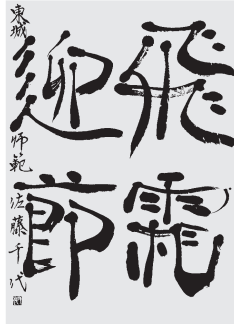 飛霜
迎節
東城 師範 佐藤千代